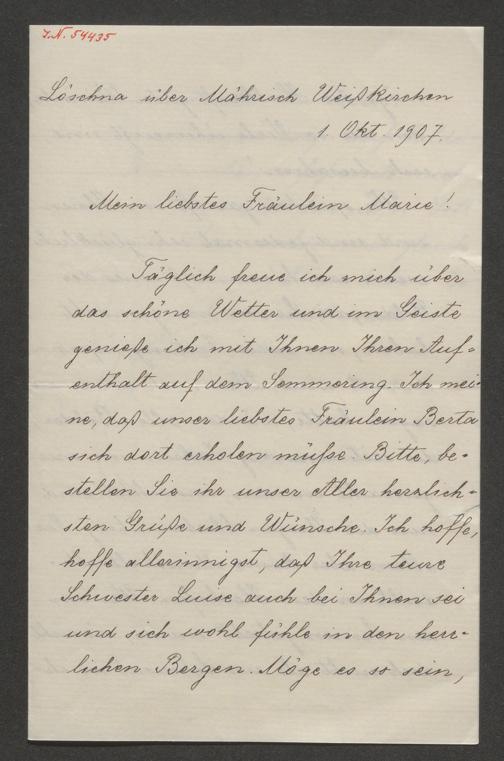 I.N. 54435
Löschna über Mährisch Weißkirchen
1. Okt. 1907.
Mein liebstes Fräulein Marie!
Täglich freue ich mich über
das schöne Wetter und im Geiste
genieße ich mit Ihnen Ihren Auf=
enthalt auf dem Semmering. Ich mei=
ne, daß unser liebstes Fräulein Berta
sich dort erholen müße. Bitte, be=
stellen Sie ihr unser Aller herzlich=
sten Grüße und Wünsche. Ich hoffe,
hoffe allerinnigst, daß Ihre teure
Schwester Luise auch bei Ihnen sei
und sich wohl fühle in den herr=
lichen Bergen. Möge es so sein,